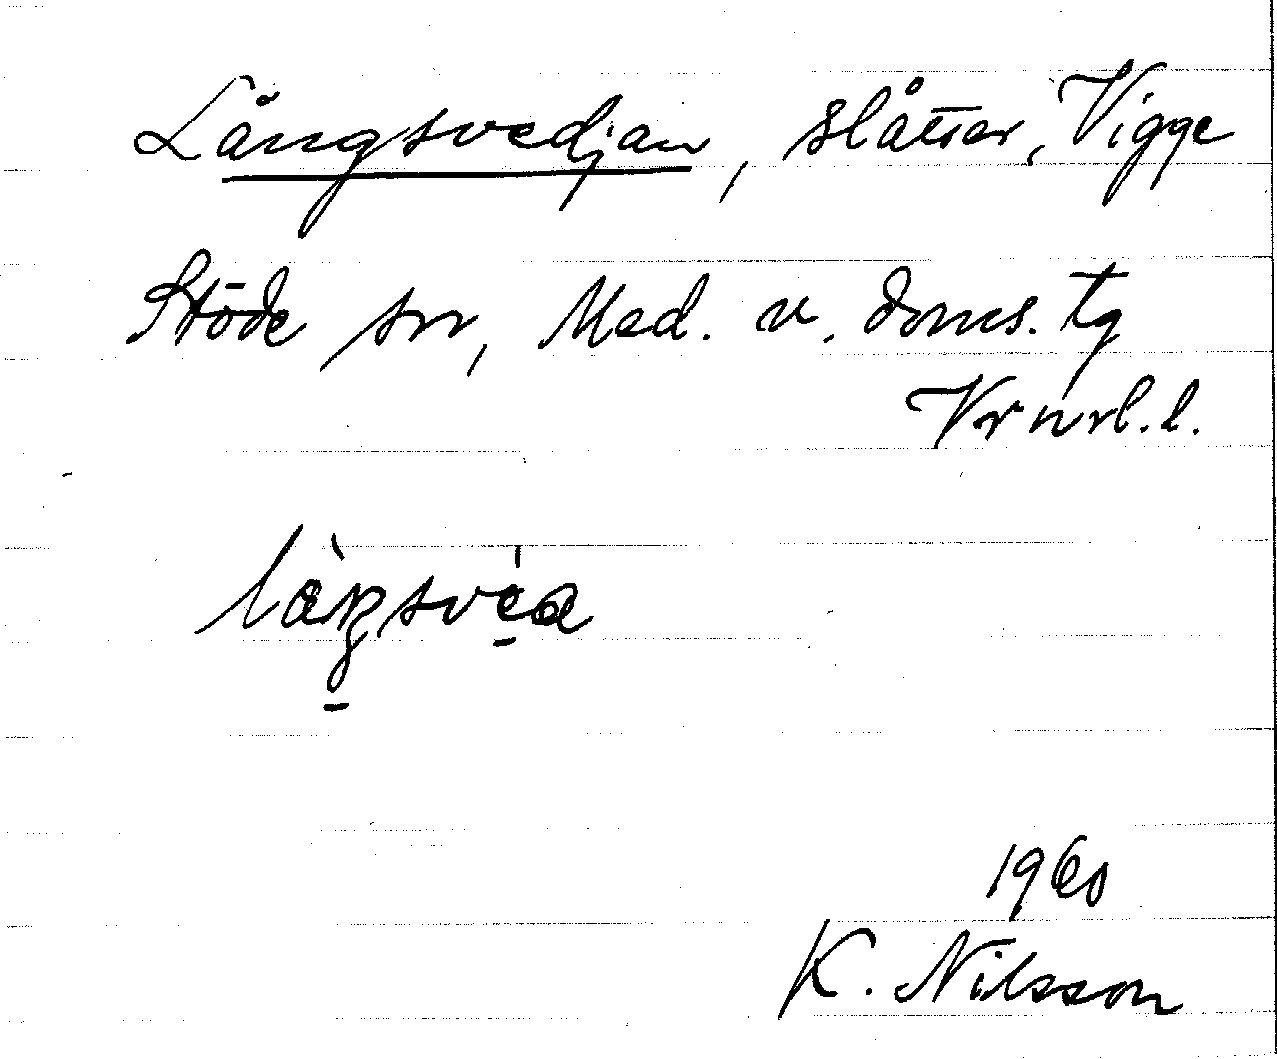 Långsvedjan, slåtter, Vigge
Stöde sn, Med. v. doms. tg
Vrnrl. l.
1960
K. Nilsson